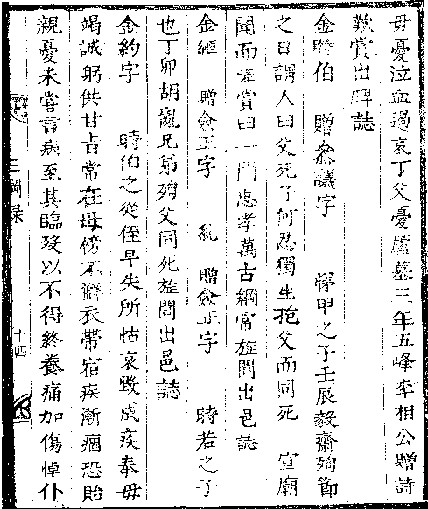 母憂泣血過哀丁父憂廬墓三年五峰李相公贈詩
歎賞出碑誌
金時伯 贈參議字 惲甲之子壬辰毅齋殉節
之日謂人曰父死子何忍獨生抱父而同死 宣廟
聞而旌賞曰一門忠孝萬古綱常旌閭出邑誌
金纚 贈僉正字 糺 贈僉正字 時若之子
也丁卯胡亂兄弟殉父同死旌閭出邑誌
金約字 時伯之從侄早失所怙哀毀成疾奉母
竭誠躬供甘旨常在母傍不解衣帶宿疾漸痼恐貽
親憂未嘗言病至其臨歿以不得終養痛加傷悼仆
三綱录
十四